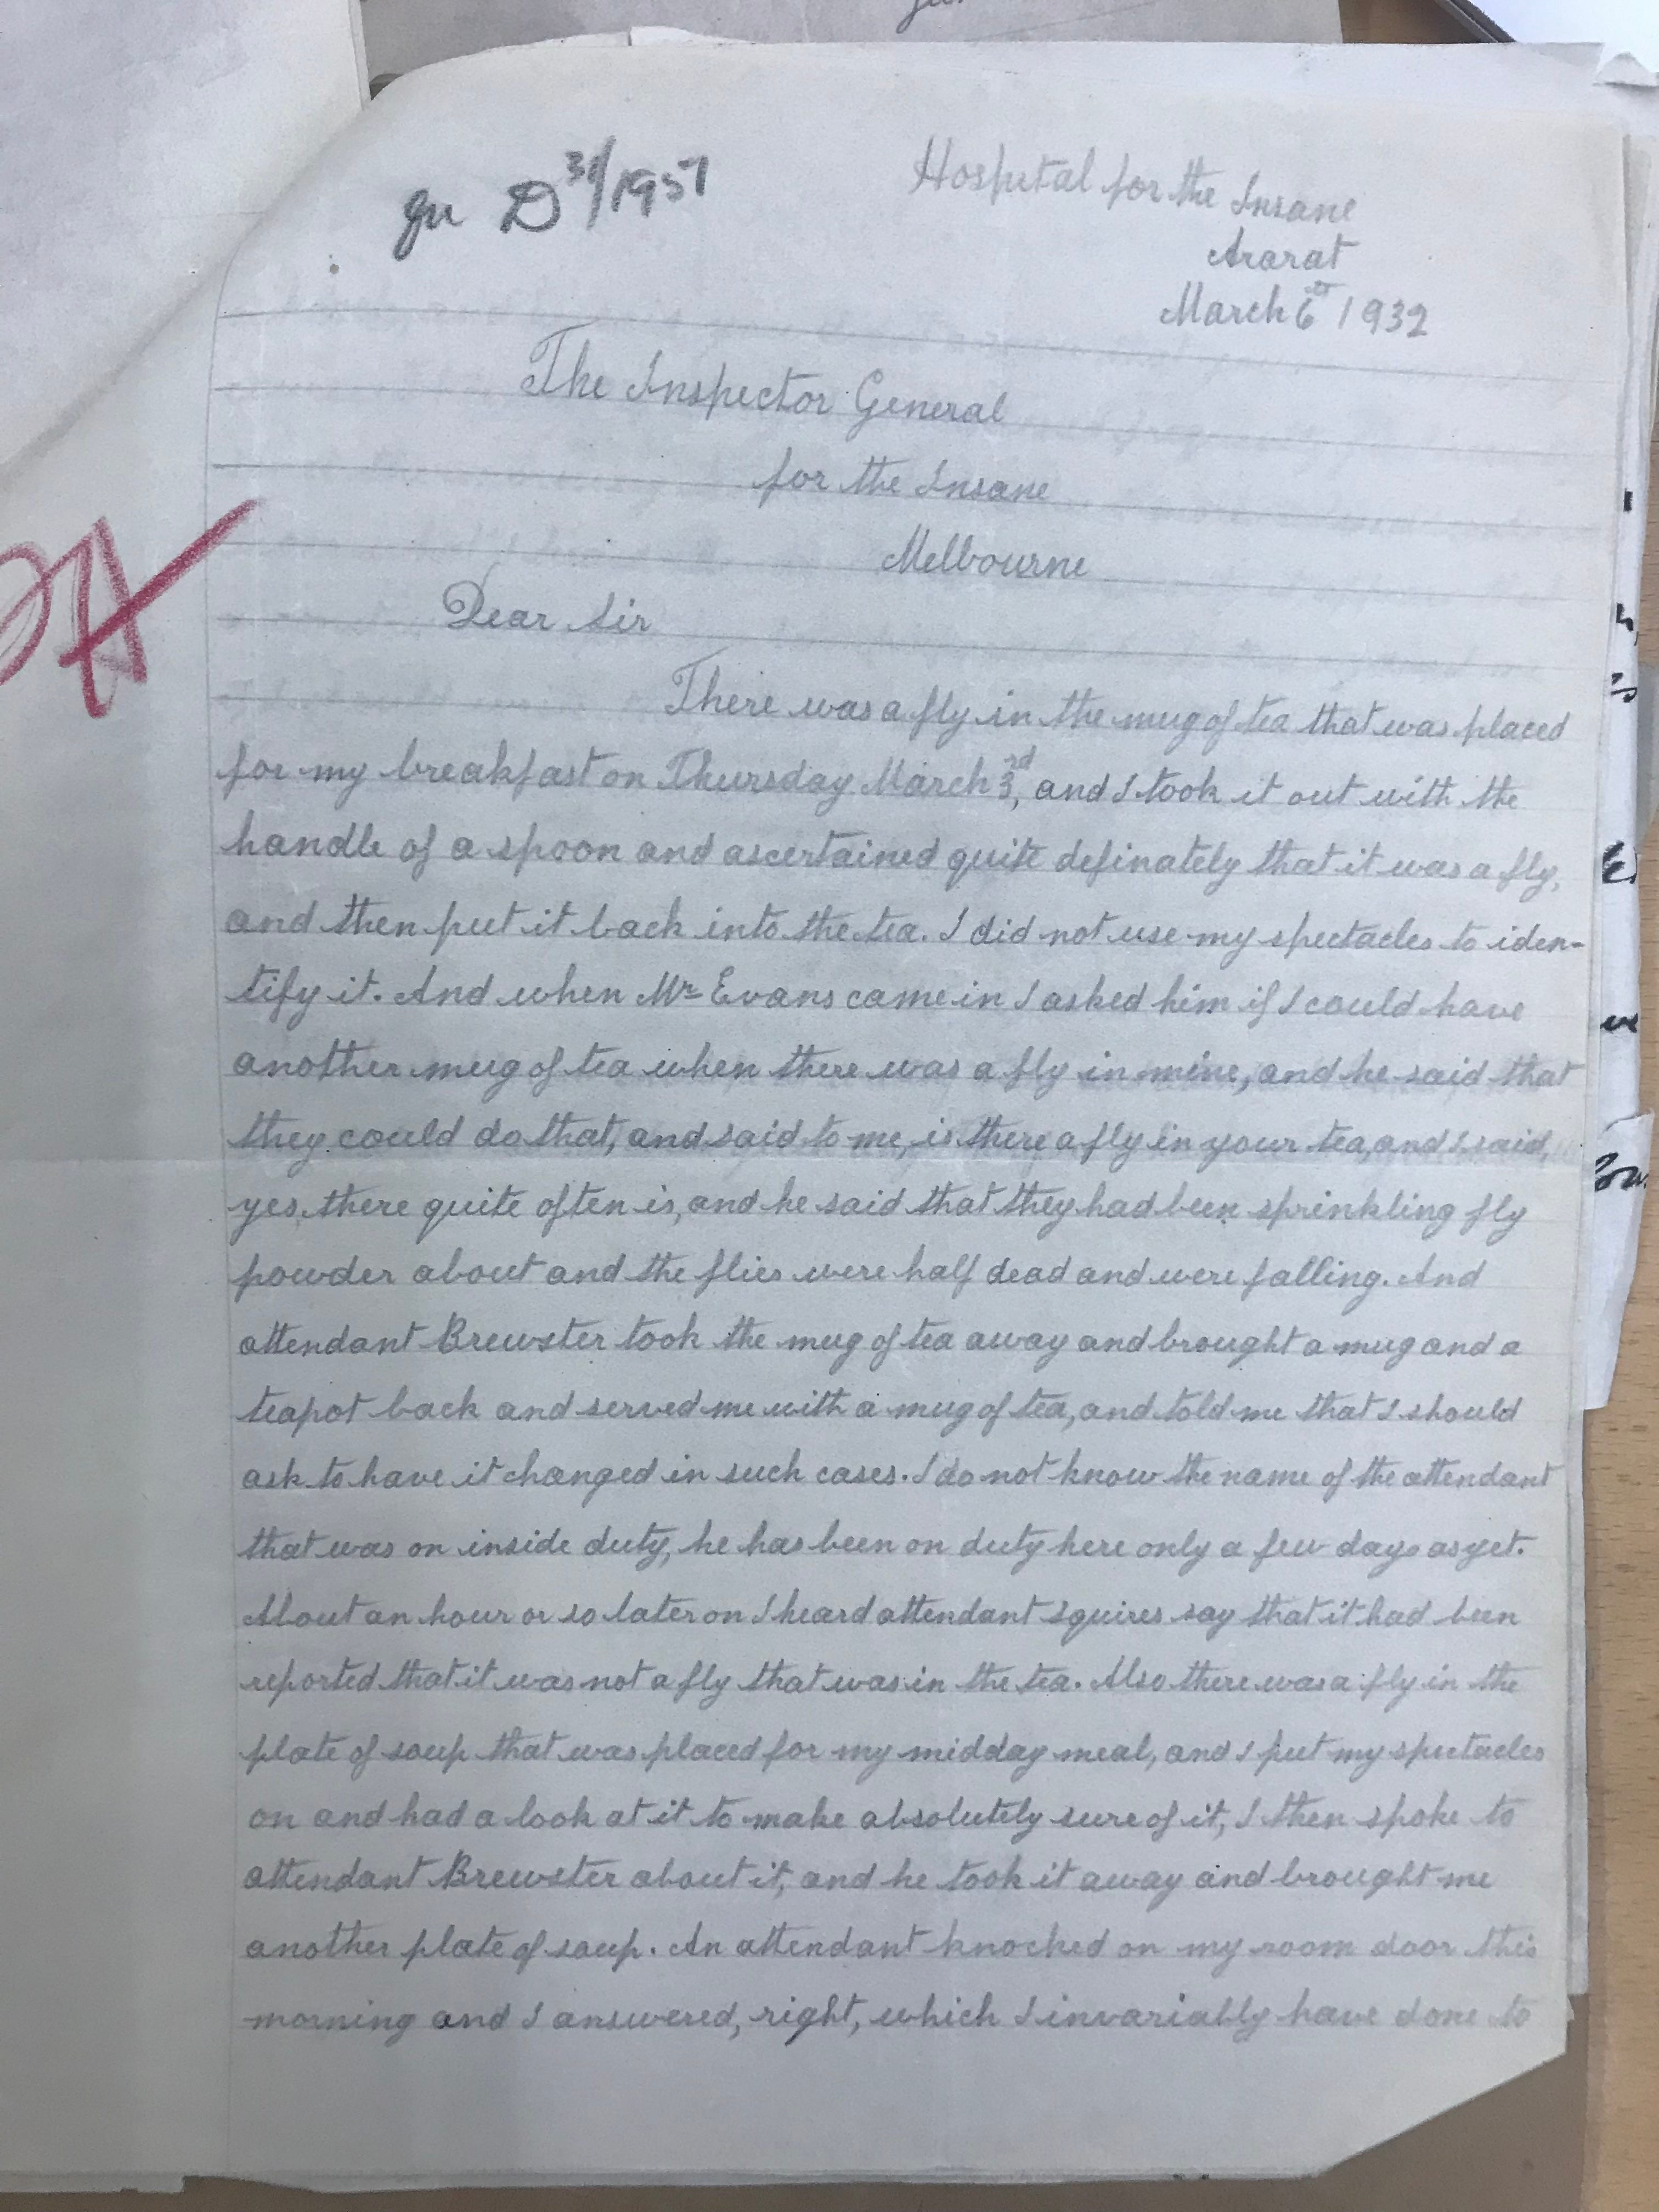 D 31/1957
Hospital for the Insane
Ararat
March 6th 1932
The Inspector General
for the Insane
Melbourne
Dear Sir
There was a fly in the mug of tea that was placed
for my breakfast on Thursday March 3rd, and I took it out with the
handle of a spoon and ascertained quite definately that it was a fly,
and then put it back into the tea. I did not use my spectacles to iden-
tify it. And when Mr Evans came in I asked him if I could have
another mug of tea when there was a fly in mine, and he said that
they could do that, and said to me, is there a fly in your tea, and I said,
yes, there quite often is, and he said that they had been sprinkling fly
powder about and the flies were half dead and were falling. And
attendant Brewster took the mug of tea away and brought a mug and a
teapot back and served me with a mug of tea, and told me that I should
ask to have it changed in such cases. I do not know the name of the attendant
that was on inside duty, he has been on duty here only a few days as yet.
About an hour or so later on I heard attendant Squires say that it had been
reported that it was not a fly that was in the tea. Also there was a fly in the
plate of soup that was placed for my midday meal, and I put my spectacles
on and had a look at it to make absolutely sure of it, I then spoke to
attendant Brewster about it, and he took it away and brought me
another plate of soup. An attendant knocked on my room door this
morning and I answered, right, which I invariably have done to